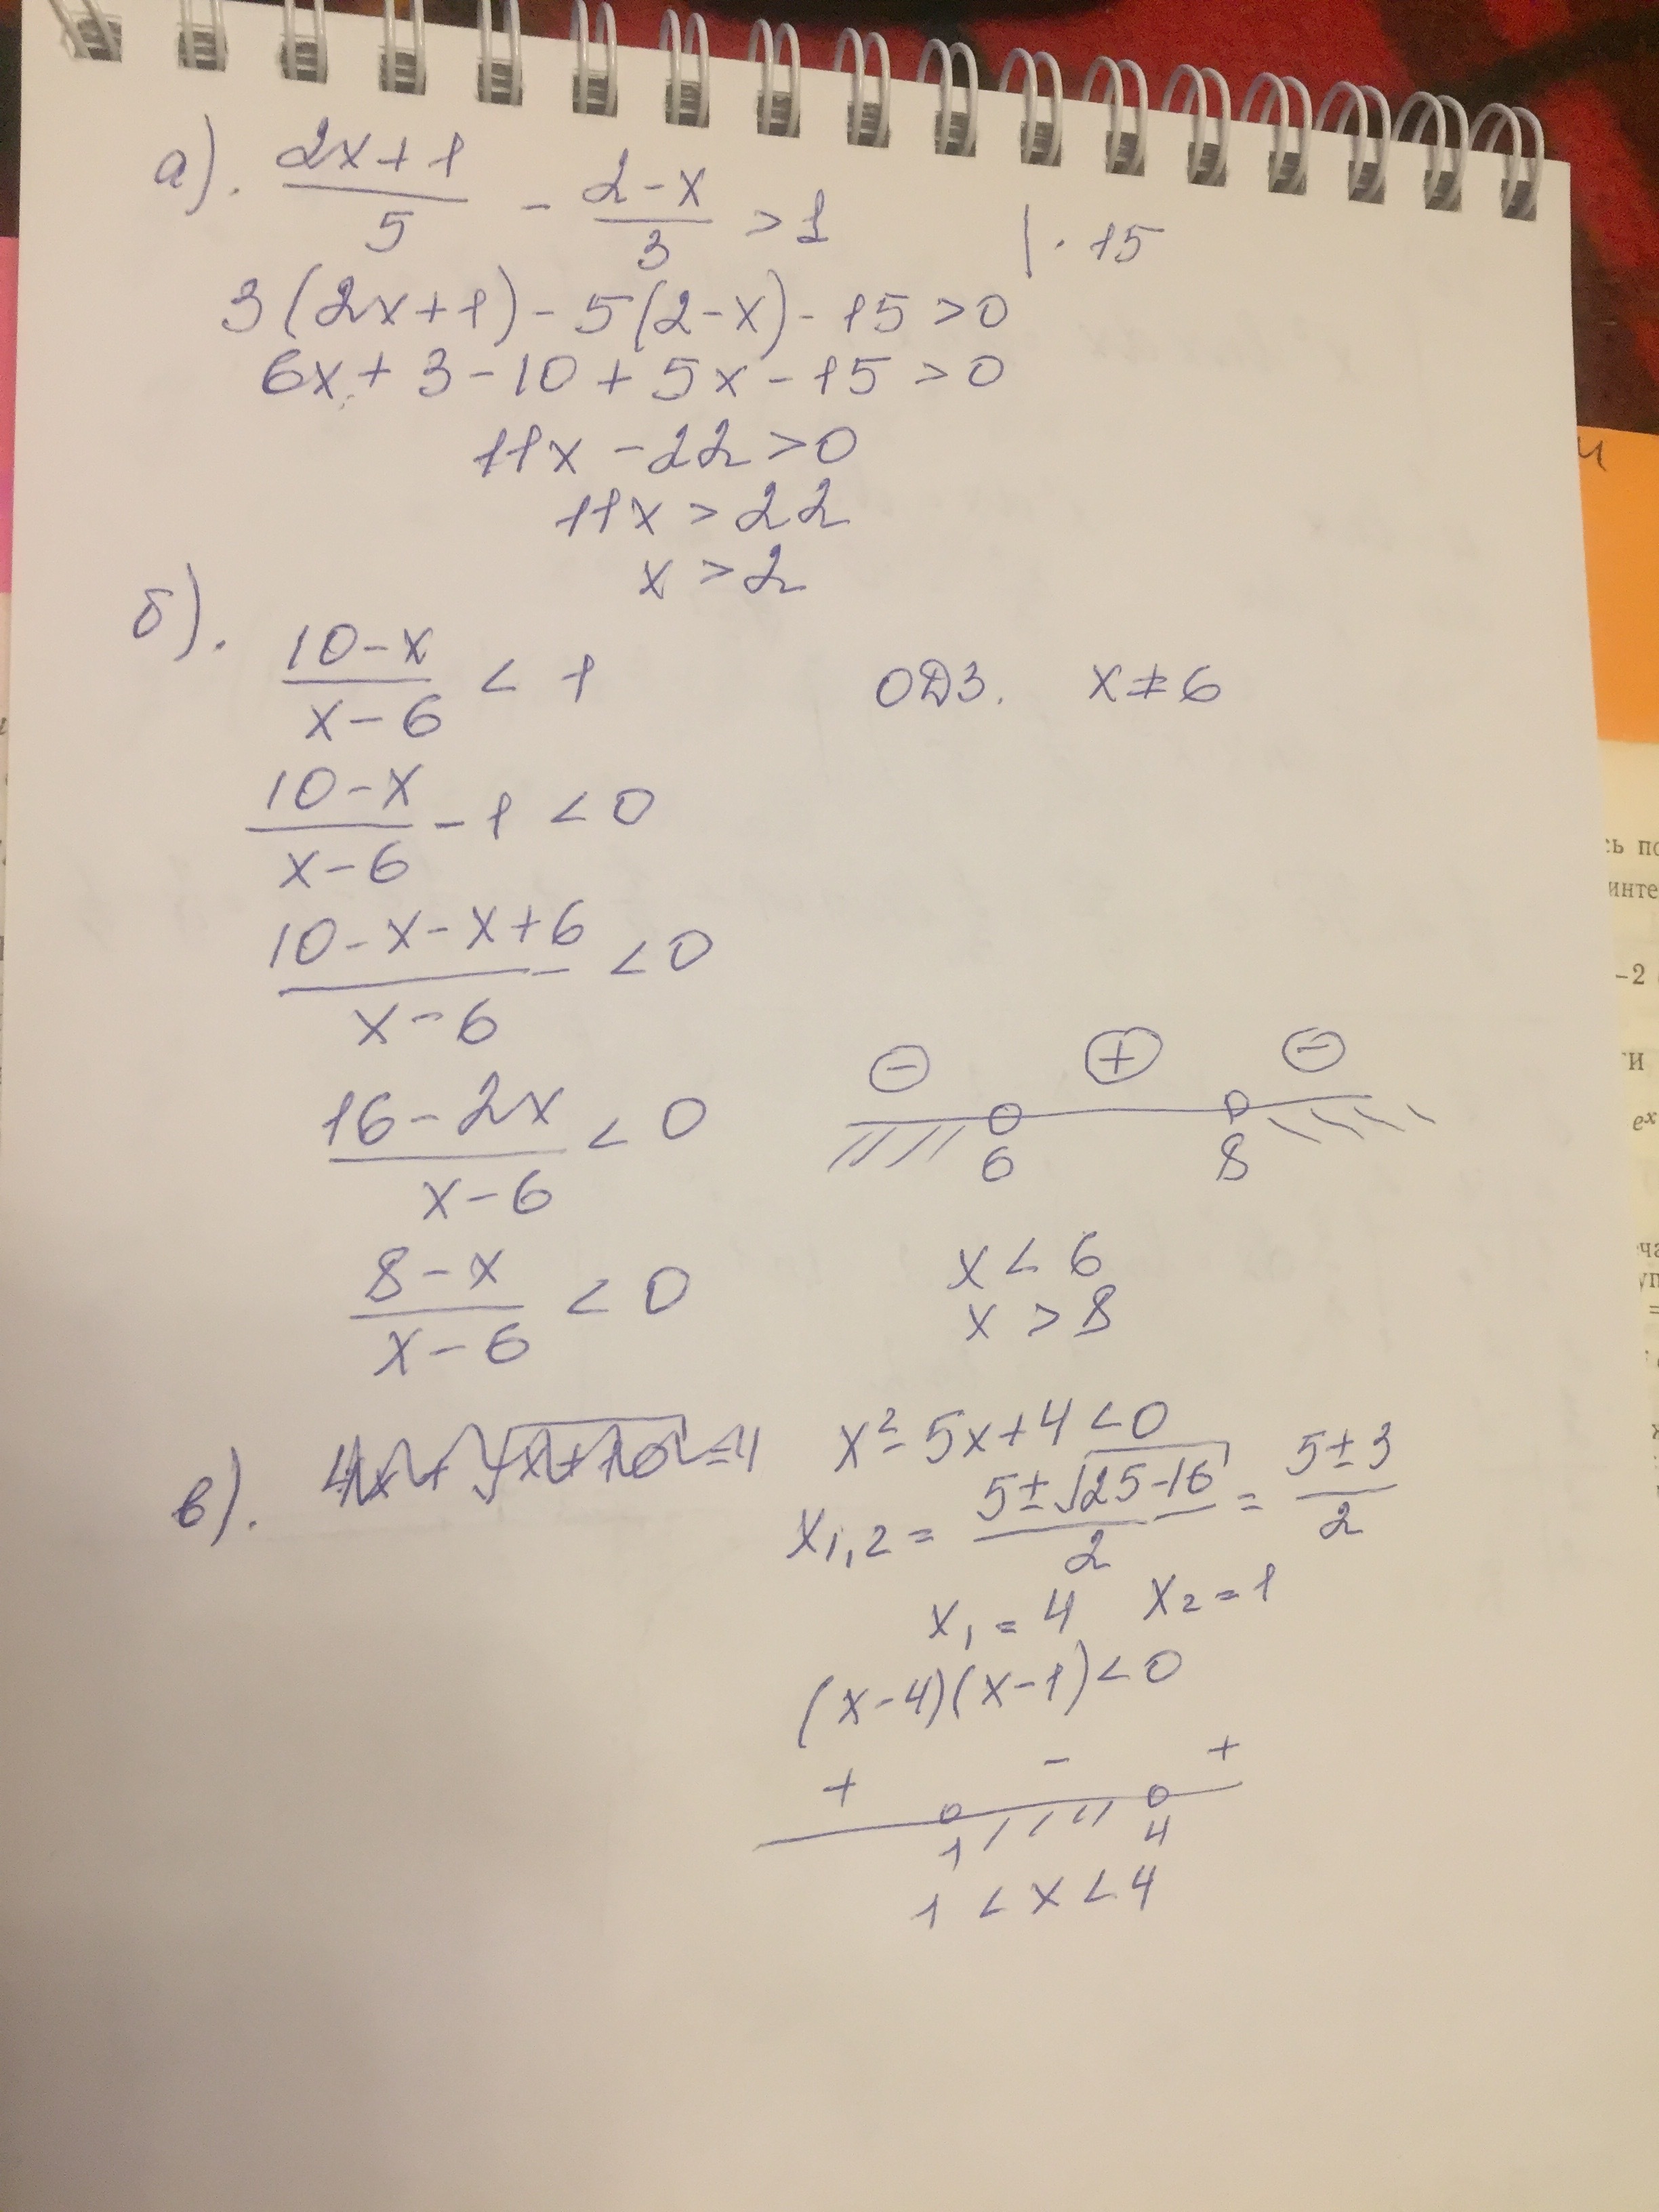 а). (2x+1)/5 - (2-x)/3 > 1 | · 15
3(2x+1) - 5(2-x) - 15 > 0
6x + 3 - 10 + 5x - 15 > 0
11x - 22 > 0
11x > 22
x > 2
б). (10-x)/(x-6) < 1 ОДЗ. x ≠ 6
(10-x)/(x-6) - 1 < 0
(10-x-x+6)/(x-6) < 0
(16-2x)/(x-6) < 0
- + -
6 8
(8-x)/(x-6) < 0
x < 6
x > 8
в). x² - 5x + 4 < 0
x1,2 = (5±√(25-16))/2 = (5±3)/2
x1 = 4 x2 = 1
(x-4)(x-1) < 0
+ - +
1 4
1 < x < 4
и
сь по
инте
-2
ти
ex
ча
уп
=